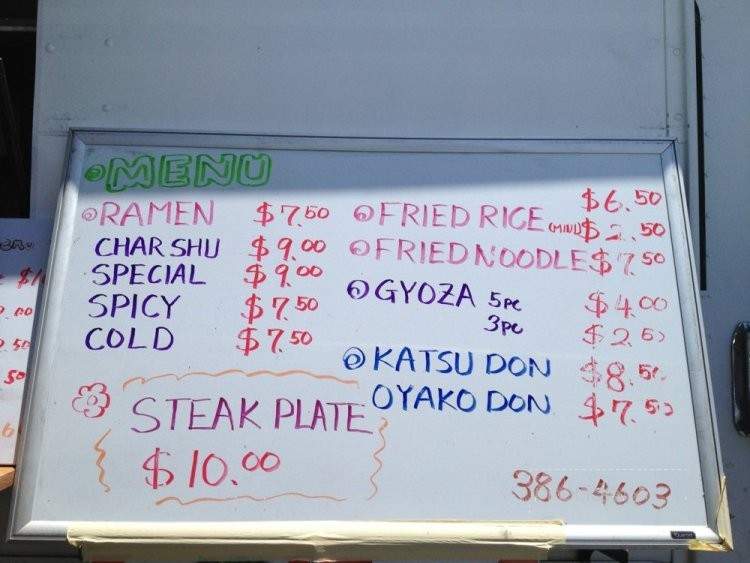 MENU
RAMEN $7.50
CHAR SHU $9.00
SPECIAL $9.00
SPICY $7.50
COLD $7.50
STEAK PLATE
$10.00
FRIED RICE $6.50
(MINI) $2.50
FRIED NOODLE $7.50
GYOZA 5pc $4.00
3pc $2.50
KATSU DON $8.50
OYAKO DON $7.50
386-4603